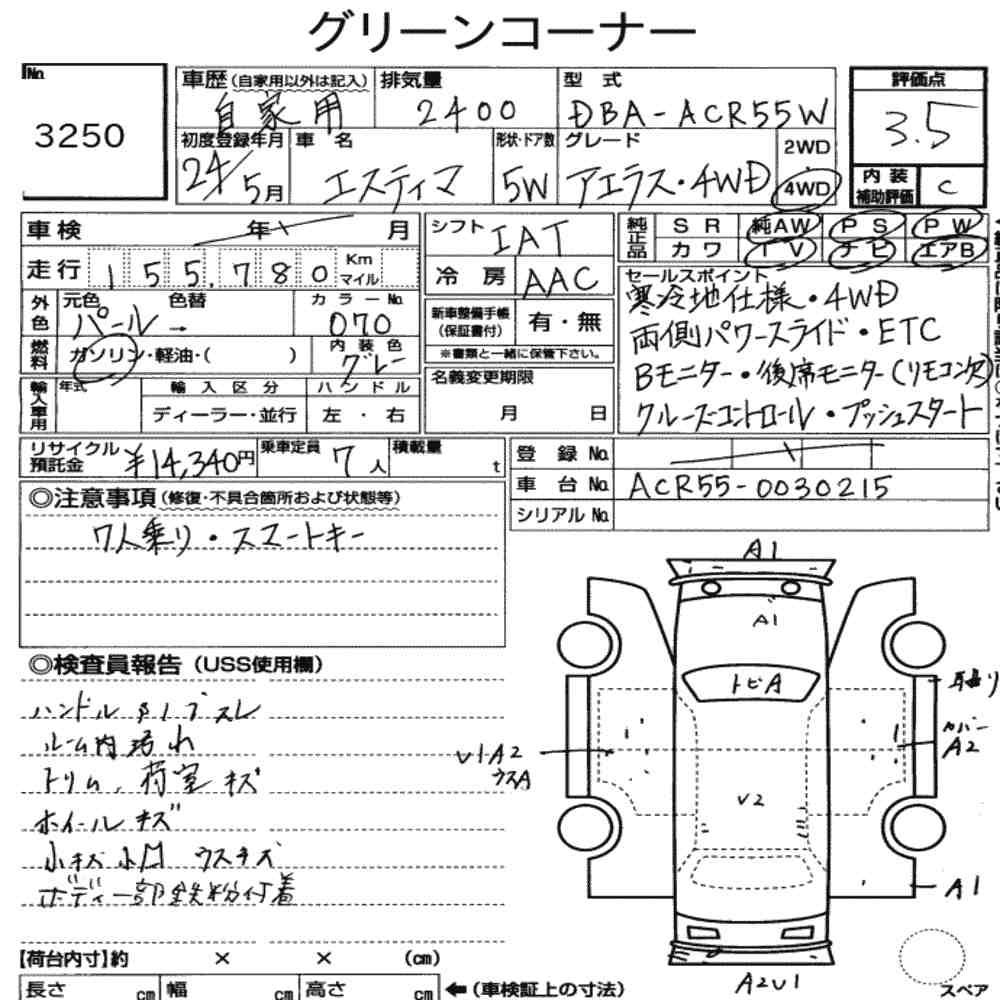 グリーンコーナー
No.
3250
車歴(自家用以外は記入) 自家用
排気量 2400
型式 DBA-ACR55W
評価点 3.5
初度登録年月 24/5月
車名 エスティマ
形状・ドア数 5W
グレード アエラス・4WD
2WD
・
4WD
内装補助評価 C
車検 年 月
走行 155,780 Km マイル
シフト IAT
冷房 AAC
純正品 SR 純AW PS PW
カワ TV ナビ エアB
外色 元色 パール → 色替
カラーNo. 070
燃料 ガソリン・軽油・( )
内装色 グレー
新車整備手帳(保証書付) 有・無
※書類と一緒に保管下さい。
セールスポイント
寒冷地仕様・4WD
両側パワースライド・ETC
Bモニター・後席モニター(リモコン欠)
クルーズコントロール・プッシュスタート
輸入車用 年式 輸入区分 ハンドル
ディーラー・並行 左・右
名義変更期限
月 日
リサイクル預託金 ¥14,340円
乗車定員 7人
積載量 t
登録No.
車台No. ACR55-0030215
シリアルNo.
◎注意事項(修復・不具合箇所および状態等)
7人乗り・スマートキー
◎検査員報告(USS使用欄)
ハンドル
ルーム内汚れ
トリム、荷室キズ
ホイールキズ
小キズ小凹 ウスキズ
ボディ一部鉄粉付着
A1
A1
トビA
V1・A2
ウスA
カバー
A2
V2
A1
A2V1
スペア
【荷台内寸】約 × × (cm)
長さ cm 幅 cm 高さ cm ←(車検証上の寸法)